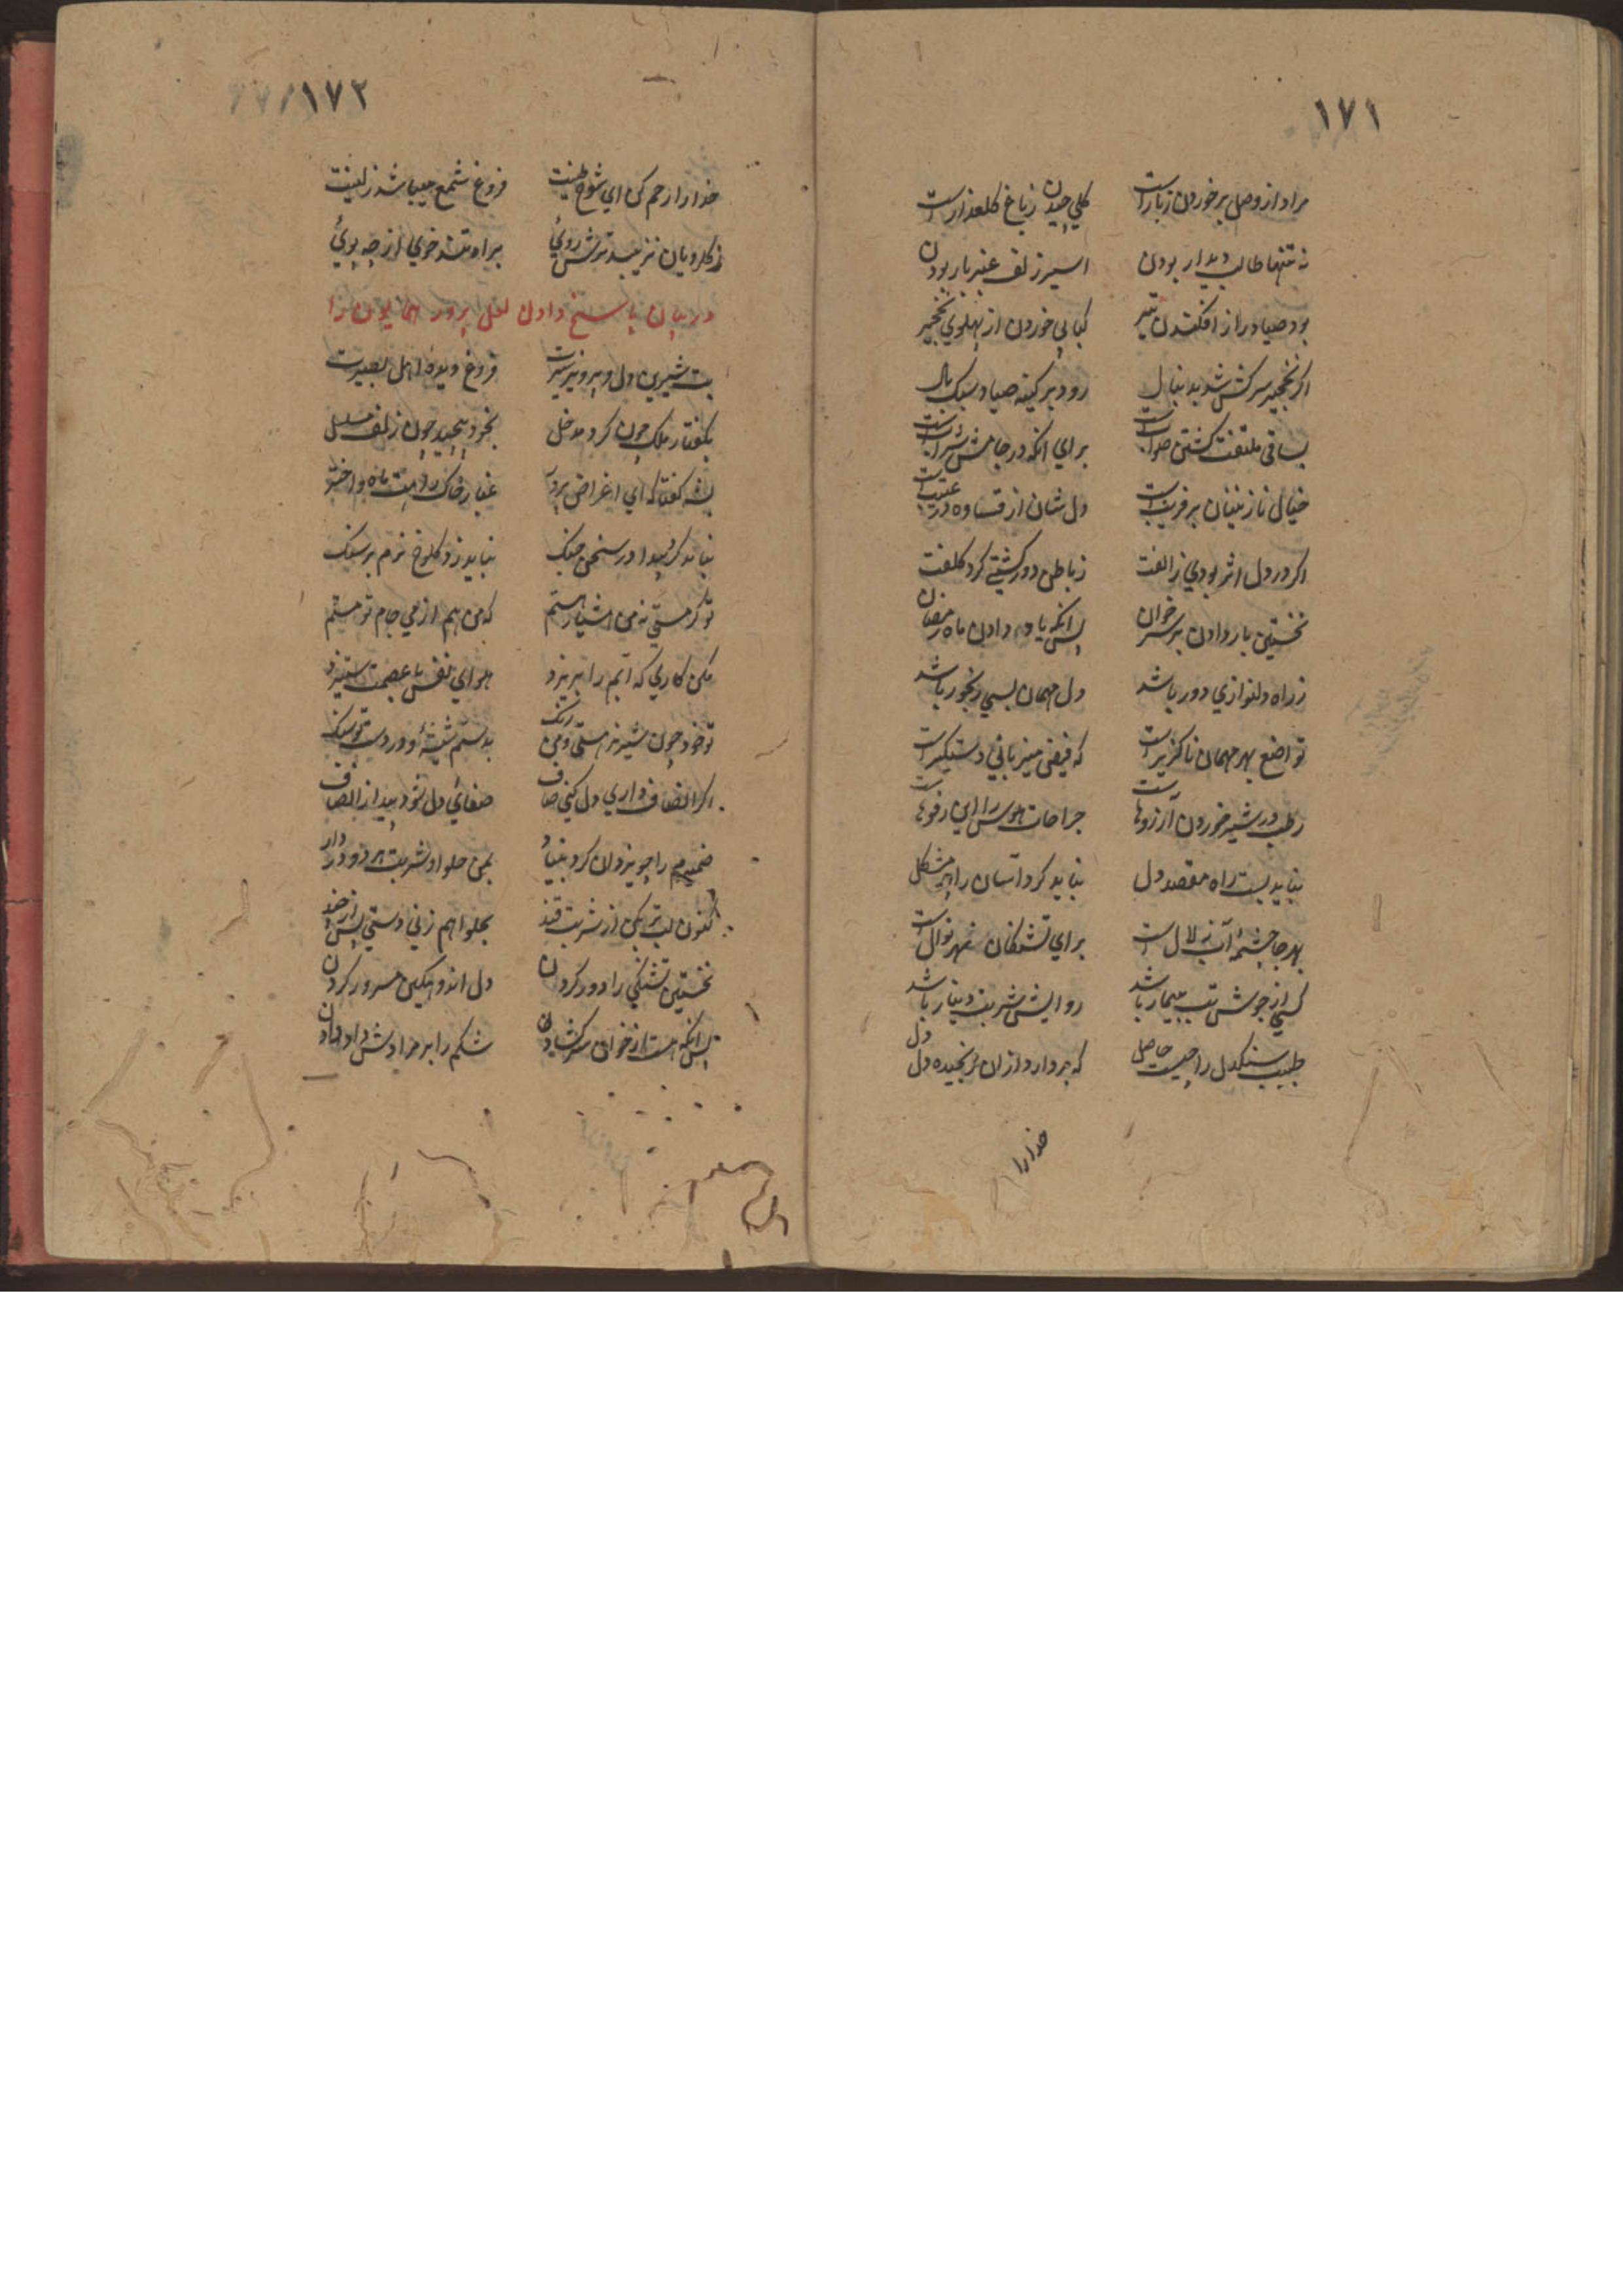 ۱۷۱
مراد از وصل برخوردن ز یار است گلی چیدن ز باغ گلعذار است
نه تنها طالب دیدار بودن اسیر زلف عنبربار بودن
بود صیاد را از افکندن تیر کبابی خوردن از پهلوی نخجیر
اگر نخجیر سرکش شد بدنبال رود بر کینه صیاد سبک بال
بساقی ملتفت گشتن صوابست برای آنکه در جامش شرابست
خیال نازنینان پر فریبست دل شان از قساوه در عتیبست
اگر در دل اثر بودی ز الفت ز باطن دور گشتی گرد کلفت
نخستین بار دادن بر سر خوان پس آنکه یاد دادن ماه رمضان
ز راه دلنوازی دور باشد دل مهمان بسی رنجور باشد
تواضع بهر مهمان ناگزیر است که فیض میزبانی دستگیر است
رطب در شیر خوردن آرزوهاست جراحات هوس را این رفوهاست
نباید بست راه مقصد دل نباید کرد آسان را به مشکل
بهر جا چشمهٔ آب زلال است برای تشنگان نهر نوال است
کسی از جوش تب بیمار باشد روایش شربت دینار باشد
طبیب سنگدل را چیست حاصل که بردارد ازان رنجیده دل دل
خدا را
۱۷۲
خدا را رحم کن ای شوخ طینت فروغ شمع میباشد ز لینت
ز گلرویان نزیبد ترش روئی براه تند خوئی از چه پوئی
در بیان پاسخ دادن لعل پرور همایون را
بت شیرین دل و پرویز سیرت فروغ دیدهٔ اهل بصیرت
بگفتار ملک چون کرد مدخل بخود پیچید چون زلف مسلسل
بشه گفتا که ای اغراض پرور غبار خاک روبت ماه و اختر
نباید کرد پیدا در سخن جنگ نباید زد کلوخ نرم بر سنگ
تو گر مستی نه من هشیار هستم که من هم از می جام تو مستم
مکن کاری که آبم را بریزد هوای نفس با عصمت ستیزد
تو خود چون شیر نر هستی و من رنگ بدستم شیشهٔ و در دست تو سنگ
اگر انصاف داری دل کنی صاف صفائی دل شود پیدا ز انصاف
ضمیرم را چو یزدان کرد بنیاد بمن حلوا و شربت هر دو در داد
کنون لب تر بکن از شربت قند بحلوا هم زنی دستی پس از چند
نخستین تشنگی را دور کردن دل اندوهگین مسرور کردن
پس آنکه هست از خوان سر گشادن شکم را بر مرادش داد دادن